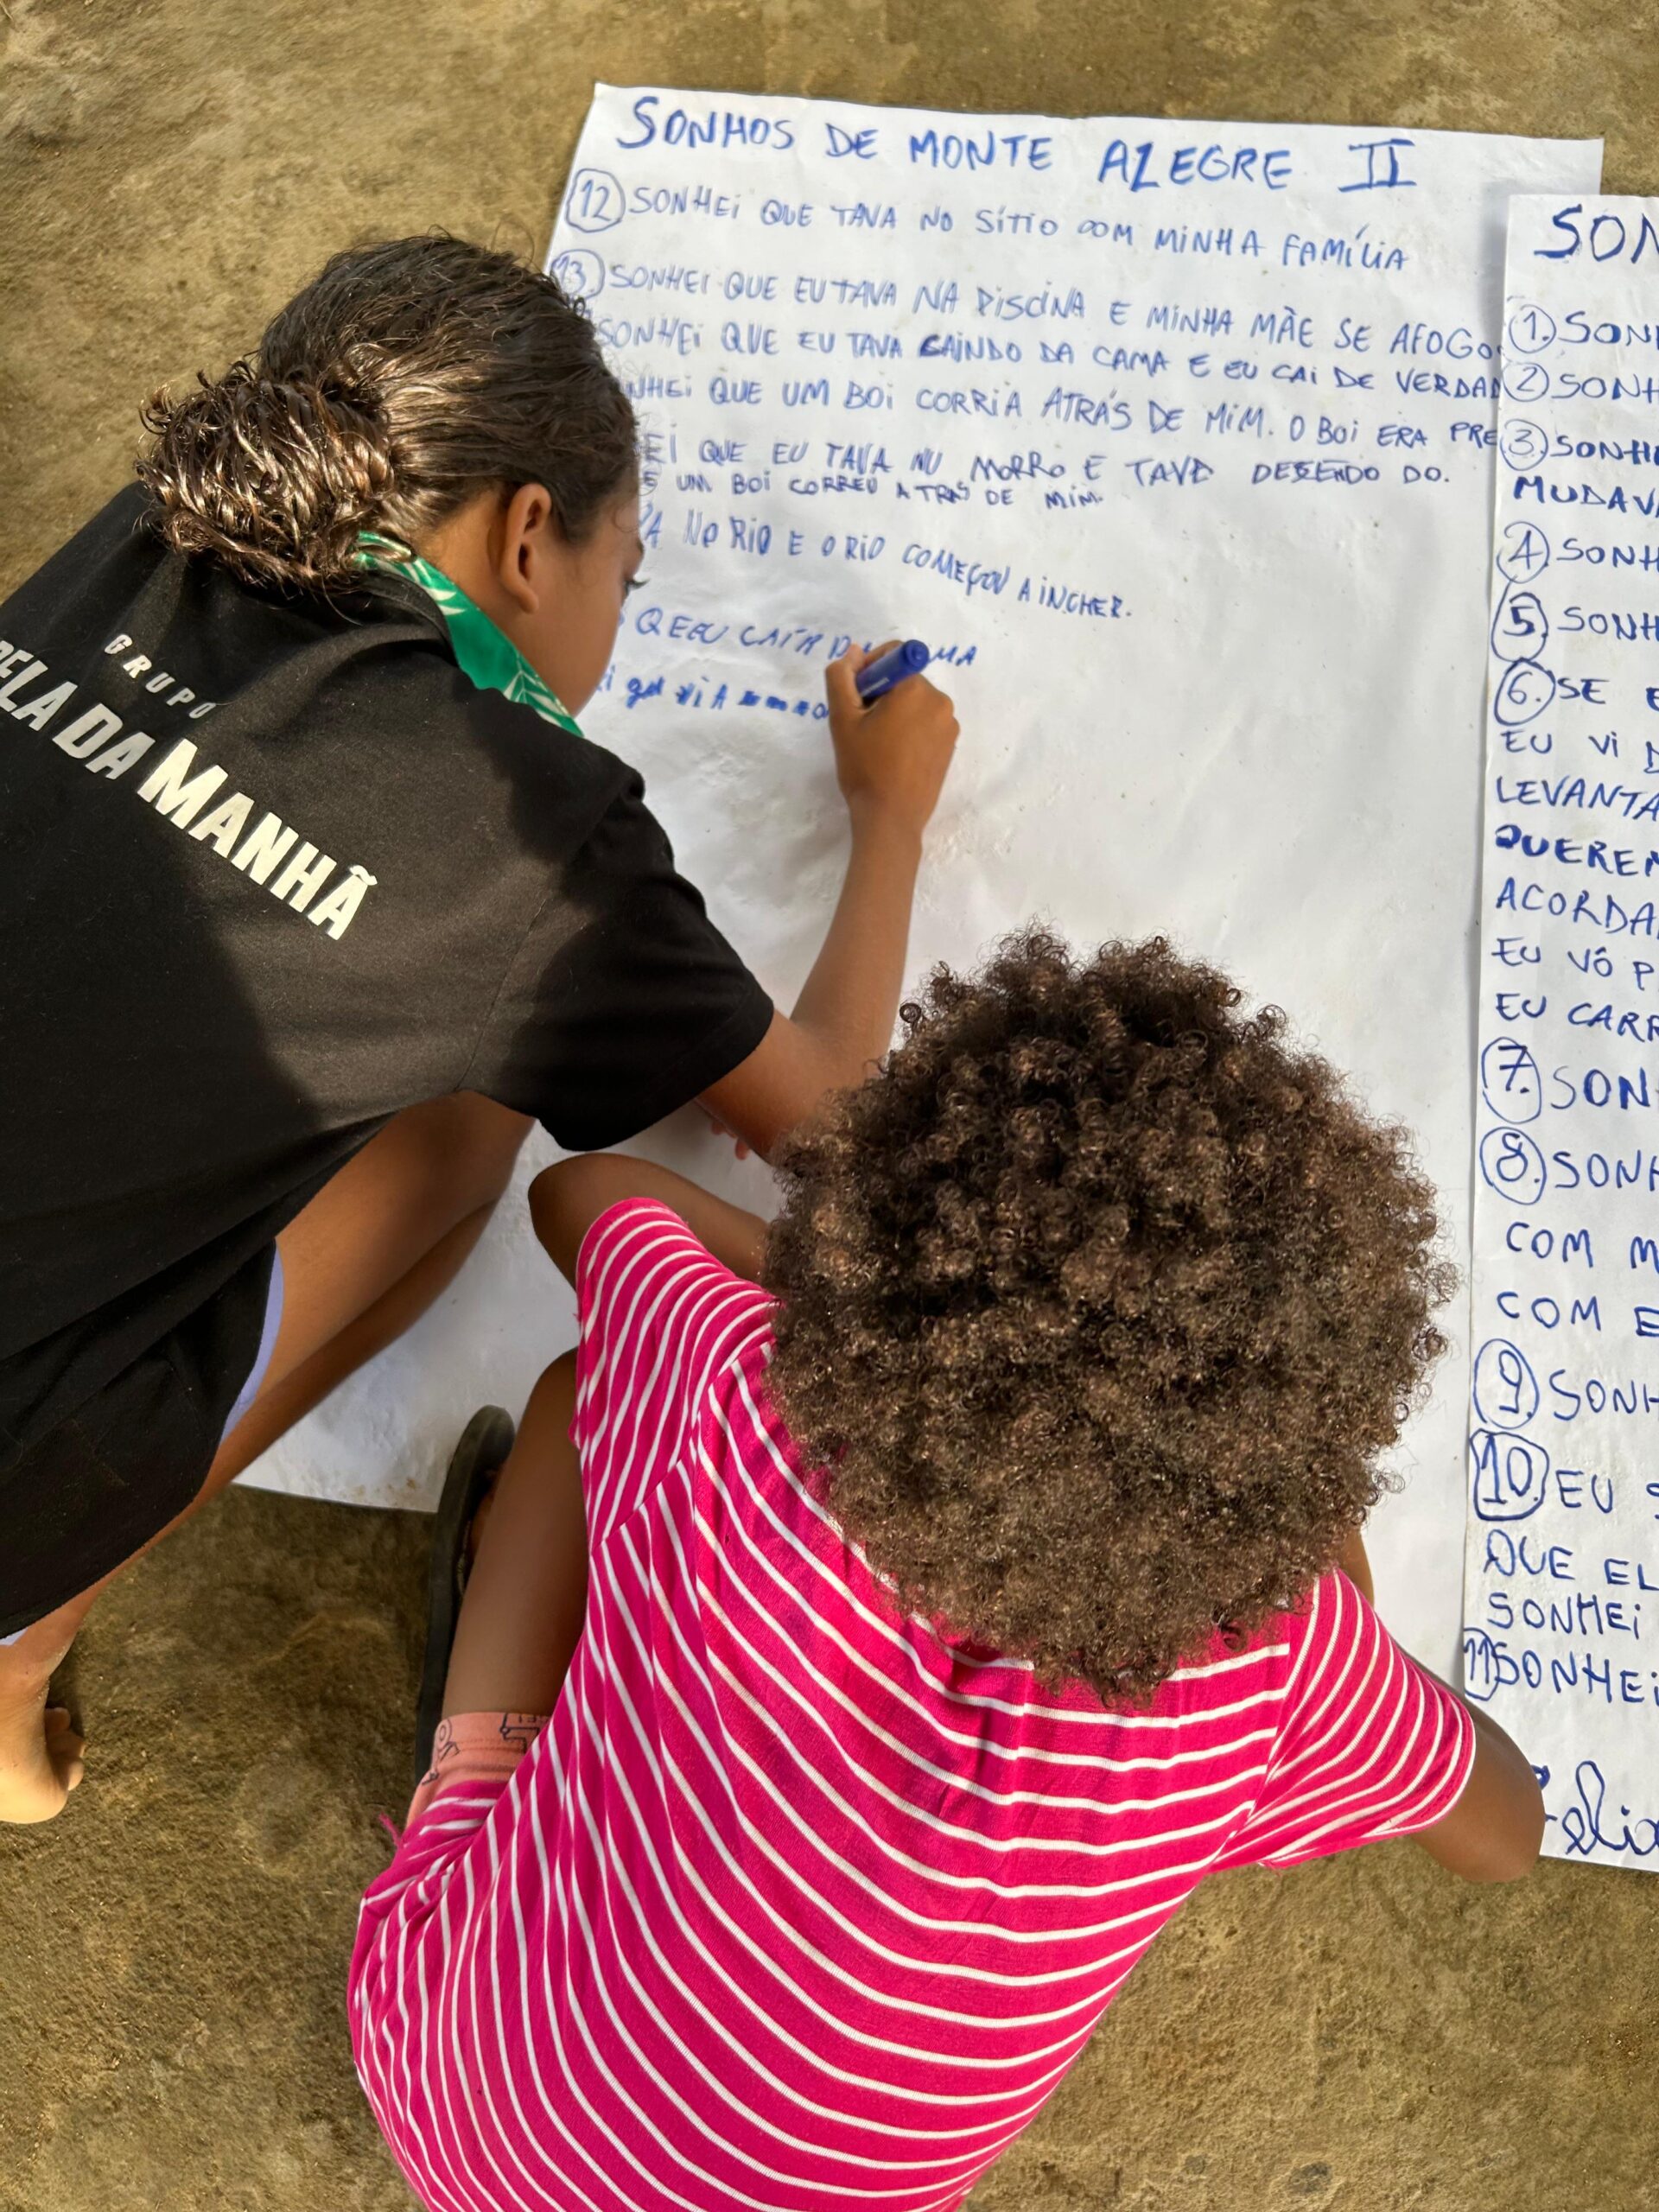 SONHOS DE MONTE ALEGRE II
12 SONHEI QUE TAVA NO SÍTIO COM MINHA FAMÍLIA
13 SONHEI QUE EU TAVA NA PISCINA E MINHA MÃE SE AFOGO
SONHEI QUE EU TAVA CAINDO DA CAMA E EU CAI DE VERDAD
NHEI QUE UM BOI CORRIA ATRÁS DE MIM. O BOI ERA PRE
EI QUE EU TAVA NU MORRO E TAVA DESENDO DO.
E UM BOI CORREU ATRÁS DE MIM.
VA NO RIO E O RIO COMEÇOU A INCHER.
QEEU
MA
SON
1. SONH
2 SONH
3 SONHE
MUDAVA
4 SONH
5 SONH
6. SE E
EU VI D
LEVANTA
QUEREM
ACORDA
EU VÔ P
EU CARR
7. SON
8. SONH
COM M
COM E
9 SONH
10. EU S
QUE EL
SONHEI
11 SONHEI
GRUPO
ELA DA MANHÃ